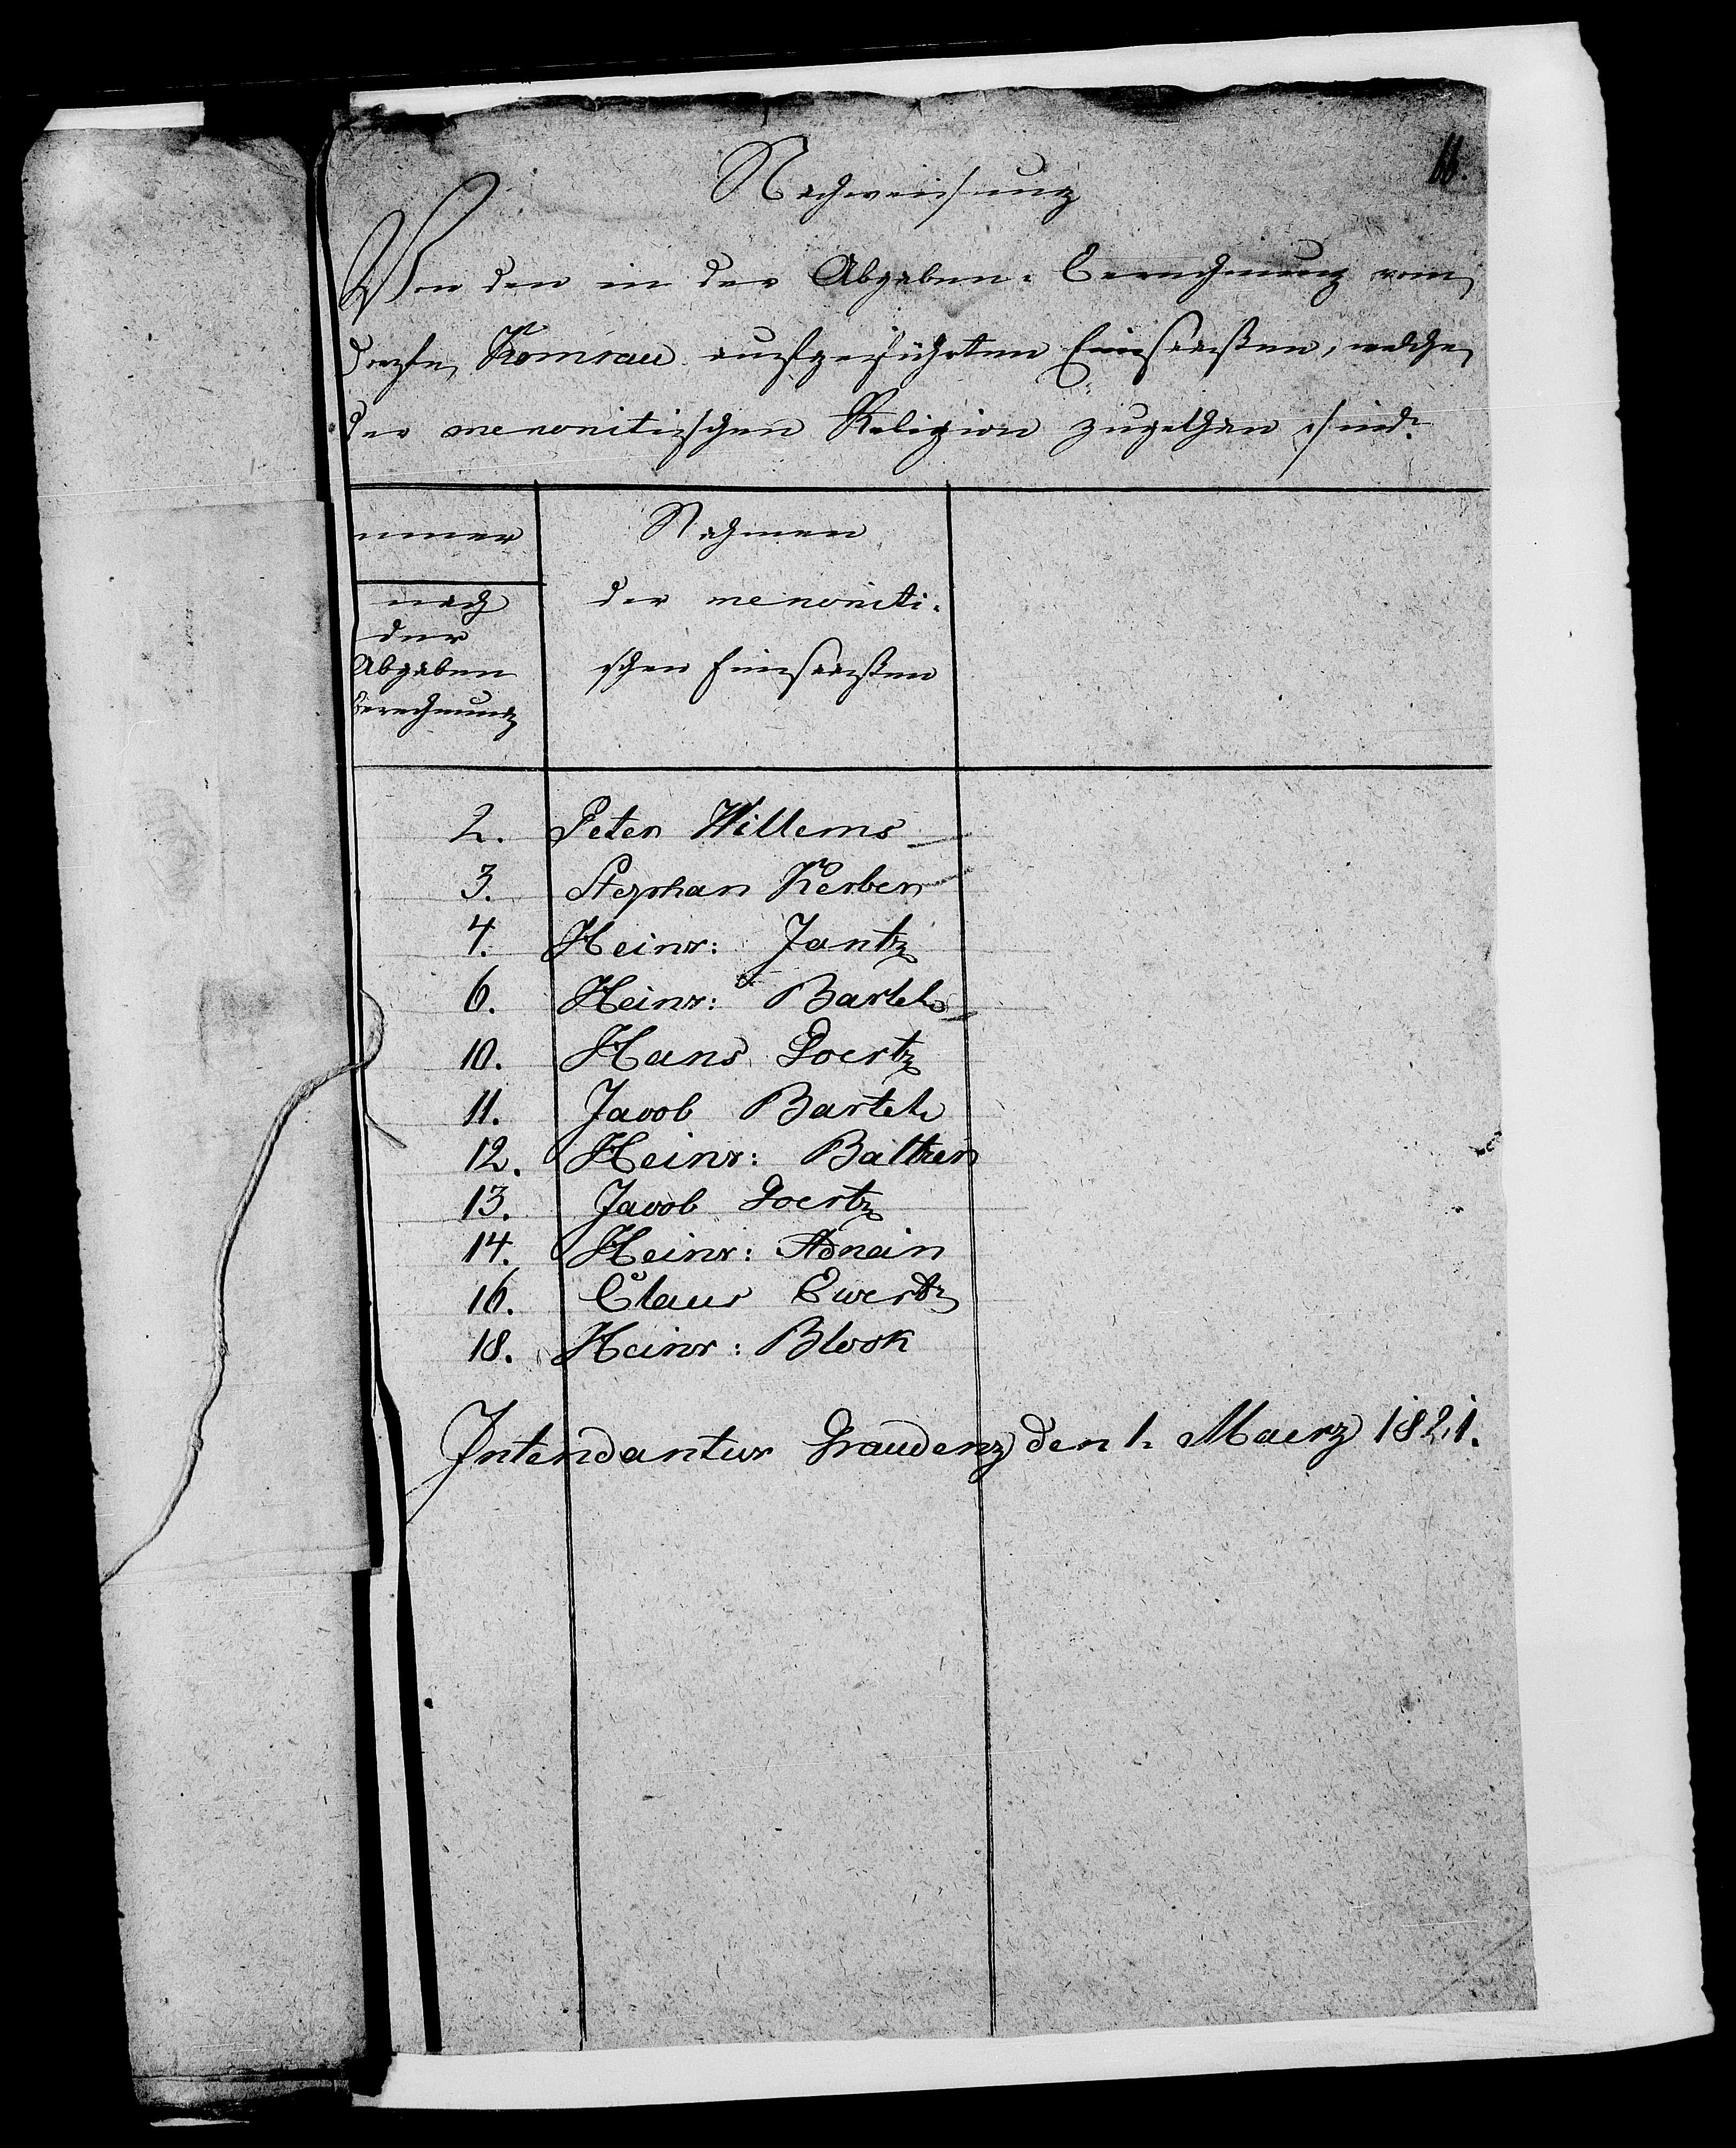 11.
Nachweisung
Von den in der Abgaben-Berechnung vom
Dorfe Komrau aufgeführten Einsaaßen, welche
der menonitischen Religion zugethan sind.
nmer
Nahmen
nach
der menoniti-
der
Abgaben
schen Einsaaßen
Berechnung
2. Peter Willems
3. Stephan Kerber
4. Heinr: Jantz
6. Heinr: Bartel
10. Hans Goertz
11. Jacob Bartel
12. Heinr: Baltzer
13. Jacob Goertz
14. Heinr: Adrian
16. Claus Ewert
18. Heinr: Block
Intendantur Graudenz den 1. Maerz 1821.